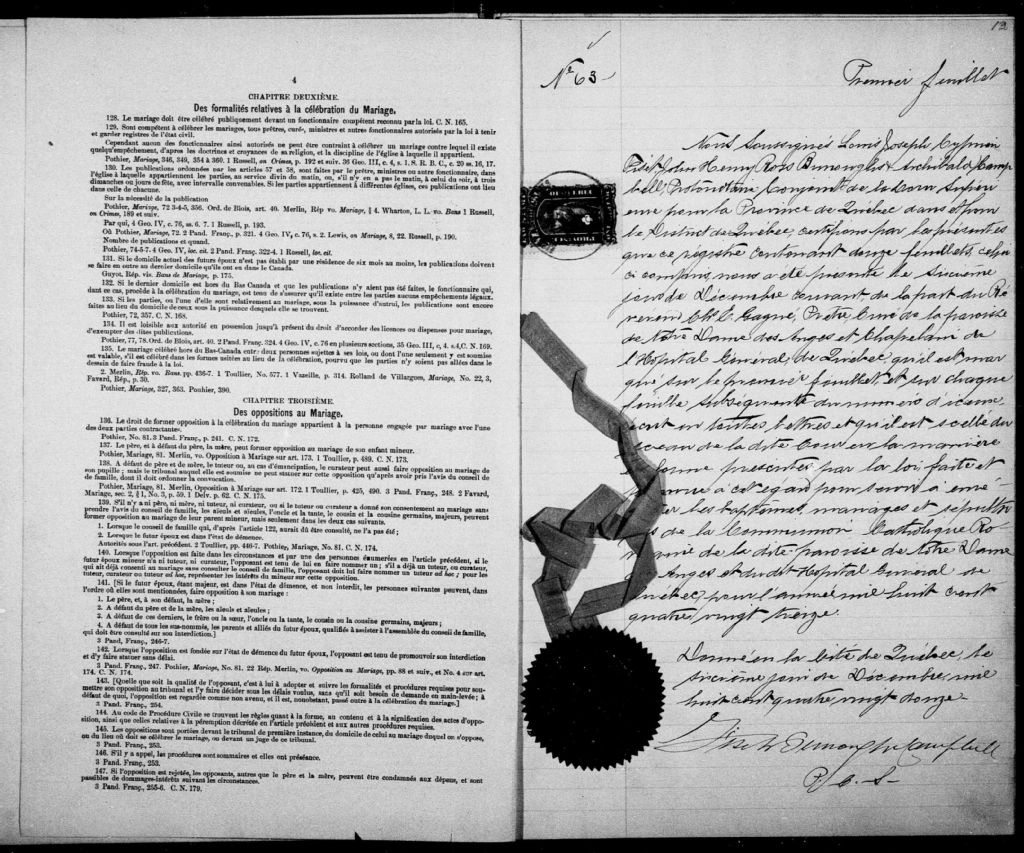 4
CHAPITRE DEUXIÈME.
Des formalités relatives à la célébration du Mariage.
128. Le mariage doit être célébré publiquement devant un fonctionnaire compétent reconnu par la loi. C. N. 165.
129. Sont compétents à célébrer les mariages, tous prêtres, curés, ministres et autres fonctionnaires autorisés par la loi à tenir
et garder registres de l'état civil.
Cependant aucun des fonctionnaires ainsi autorisés ne peut être contraint à célébrer un mariage contre lequel il existe
quelqu'empêchement, d'après les doctrines et croyances de sa religion, et la discipline de l'église à laquelle il appartient.
Pothier, Mariage, 346, 349, 354 à 360. 1 Russell, on Crimes, p. 192 et suiv. 36 Geo. III, c. 4, s. 1. S. R. B. C., c. 20 ss. 16, 17.
130. Les publications ordonnées par les articles 57 et 58, sont faites par le prêtre, ministre ou autre fonctionnaire, dans
l'église à laquelle appartiennent les parties, au service divin du matin, ou, s'il n'y en a pas le matin, à celui du soir, à trois
dimanches ou jours de fête, avec intervalle convenables. Si les parties appartiennent à différentes églises, ces publications ont lieu
dans celle de chacune.
Sur la nécessité de la publication
Pothier, Mariage, 72 3-4-5, 356. Ord. de Blois, art. 40. Merlin, Rép vo. Mariage, § 4. Wharton, L. L. vo. Bans 1 Russell,
on Crimes, 189 et suiv.
Par qui, 4 Geo. IV, c. 76, ss. 6. 7. 1 Russell, p. 193.
Où Pothier, Mariage, 72. 2 Pand. Franç., p. 321. 4 Geo. IV, c. 76, s. 2. Lewis, on Mariage, 8, 22. Russell, p. 190.
Nombre de publications et quand.
Pothier, 74-5-7. 4 Geo. IV, loc. cit. 2 Pand. Franç. 322-4. 1 Russell, loc. cit.
131. Si le domicile actuel des futurs époux n'est pas établi par une résidence de six mois au moins, les publications doivent
se faire en outre au dernier domicile qu'ils ont eu dans le Canada.
Guyot, Rép. vis. Bans de Mariage, p. 175.
132. Si le dernier domicile est hors du Bas Canada et que les publications n'y aient pas été faites, le fonctionnaire qui,
dans ce cas, procède à la célébration du mariage, est tenu de s'assurer qu'il existe entre les parties aucuns empêchements légaux.
133. Si les parties, ou l'une d'elle sont relativement au mariage, sous la puissance d'autrui, les publications sont encore
faites au lieu du domicile de ceux sous la puissance desquels elle se trouvent.
Pothier, 72, 357. C. N. 168.
134. Il est loisible aux autorité en possession jusqu'à présent du droit d'accorder des licences ou dispenses pour mariage,
d'exempter des dites publications.
Pothier, 77, 78. Ord. de Blois, art. 40. 2 Pand. Franç. 324. 4 Geo. IV, c. 76 en plusieurs sections, 35 Geo. III, c. 4. s.4, C. N. 169.
135. Le mariage célébré hors du Bas-Canada entre deux personnes sujettes à ses lois, ou dont l'une seulement y est soumise
est valable, s'il est célébré dans les formes usitées au lieu de la célébration, pourvu que les parties n'y soient pas allées dans le
dessein de faire fraude à la loi.
2. Merlin, Rép. vo. Bans. pp. 436-7. 1 Toullier, No. 577. 1 Vazeille, p. 314. Rolland de Villargues, Mariage, No. 22, 3,
Favard, Rép., p. 30.
Pothier, Mariage, 327, 363. Ponhier, 390.
CHAPITRE TROISIÈME.
Des oppositions au Mariage.
136. Le droit de former opposition à la célébration du mariage appartient à la personne engagée par mariage avec l'une
des deux parties contractantes.
Pothier, No. 81. 3 Pand. Franç., p. 241. C. N. 172.
137. Le père, et à défaut du père, la mère, peut former opposition au mariage de son enfant mineur.
Pothier, Mariage, 81. Merlin, vo. Opposition à Mariage sur art. 173. 1 Toullier, p. 489. C. N. 173.
138. A défaut de père et de mère, le tuteur ou, au cas d'émancipation, le curateur peut aussi faire opposition au mariage de
son pupille ; mais le tribunal auquel elle est soumise ne peut statuer sur cette opposition qu'après avoir pris l'avis du conseil de
famille, dont il doit ordonner la convocation.
Pothier, Mariage, 81. Merlin, Opposition à Mariage sur art. 172. 1 Toullier, p. 425, 490. 3 Pand. Franç., 248. 2 Favard,
Mariage, sec. 2, § 1, No. 3, p. 59. 1 Delv. p. 62. C. N. 175.
139. S'il n'y a ni père, ni mère, ni tuteur, ni curateur, ou si le tuteur ou curateur a donné son consentement au mariage sans
prendre l'avis du conseil de famille, les aïeuls et aïeules, l'oncle et la tante, le cousin et la cousine germains, majeurs, peuvent
former opposition au mariage de leur parent mineur, mais seulement dans les deux cas suivants.
1. Lorsque le conseil de famille qui, d'après l'article 122, aurait dû être consulté, ne l'a pas été ;
2. Lorsque le futur époux est dans l'état de démence.
Autorités sous l'art. précédent. 2 Toullier, pp. 446-7. Pothier, Mariage, No. 81. C. N. 174.
140. Lorsque l'opposition est faite dans les circonstances et par une des personnes énumérées en l'article précédent, si le
futur époux mineur n'a ni tuteur, ni curateur, l'opposant est tenu de lui en faire nommer un ; s'il a déjà un tuteur, ou curateur,
qui ait déjà consenti au mariage sans consulter le conseil de famille, l'opposant doit lui faire nommer un tuteur ad hoc ; pour les
tuteur, curateur ou tuteur ad hoc, représenter les intérêts du mineur sur cette opposition.
141. [Si le futur époux, étant majeur, est dans l'état de démence, et non interdit, les personnes suivantes peuvent, dans
l'ordre où elles sont mentionnées, faire opposition à son mariage :
1. Le père, et, à son défaut, la mère ;
2. A défaut du père et de la mère, les aïeuls et aïeules ;
3. A défaut de ces derniers, le frère ou la sœur, l'oncle ou la tante, le cousin ou la cousine germains, majeurs ;
4. A défaut de tous les sus-nommés, les parents et alliés du futur époux, qualifiés à assister à l'assemblée du conseil de famille,
qui doit être consulté sur son interdiction.]
3 Pand, Franç., 246-7.
142. Lorsque l'opposition est fondée sur l'état de démence du futur époux, l'opposant est tenu de promouvoir son interdiction
et d'y faire statuer sans délai.
3 Pand. Franç., 247. Pothier, Mariage, No. 81. 22 Rép. Merlin, vo. Opposition au Mariage, pp. 88 et suiv., et No. 4 sur art.
174. C. N. 174.
143. [Quelque soit la qualité de l'opposant, c'est à lui à adopter et suivre les formalités et procédures requises pour sou-
mettre son opposition au tribunal et l'y faire décider sous les délais voulus, sans qu'il soit besoin de demande en main-levée ; à
défaut de quoi, l'opposition est regardée comme non avenu, et il est, nonobstant, passé outre à la célébration du mariage.]
3 Pand. Franç., 254.
144. Au code de Procédure Civile se trouvent les règles quant à la forme, au contenu et à la signification des actes d'oppo-
sition, ainsi que celles relatives à la péremption décrétée en l'article précédent et aux autres procédures requises.
145. Les oppositions sont portées devant le tribunal de première instance, du domicile de celui au mariage duquel on s'oppose,
ou du lieu où doit se célébrer le mariage, ou devant un juge de ce tribunal.
3 Pand. Franç., 253.
146. S'il y a appel, les procédures sont sommaires et elles ont préséance.
3 Pand. Franç., 253.
147. Si l'opposition est rejetée, les opposants, autres que le père et la mère, peuvent être condamnés aux dépens, et sont
passibles de dommages-intérêts suivant les circonstances.
3 Pand. Franç., 255-6. C. N. 179.
12
No 63
Premier feuillet
Nous soussignés Louis Joseph Cyprien
Fiset, John Henry Ross Burroughs & Archibald Camp
bell, Protonotaire Conjoint de la Cour Supéri
eure pour la Province de Québec dans et pour
le District de Québec, certifions par les présentes
que ce régistre contenant douze feuillets, celui
ci compris, nous a été présenté le sixième
jour de Décembre courant, de la part du Ré
vérend Gagné, Prêtre Curé de la paroisse
de Notre Dame des Anges et Chapelain de
l'Hopital Général, de Québec, qu'il est mar
qué sur le premier feuillet, et sur chaque
feuille subséquente du numéro d'icelui
écrit en toutes lettres et qu'il est scellé du
sceau de la dite Cour en la manière
forme prescrites par la loi faite et
à cet égard pour servir à enré
les baptêmes, mariages et sépultu
s de la Communion Catholique Ro
maine de la dite paroisse de Notre Dame
Anges et du dit Hopital Général de
uébec, pour l'année mil huit cent
quatre vingt treize.
Donné en la Cité de Québec, le
sixième jour de Décembre, mil
huit cent quatre vingt douze
Fiset Burroughs Campbell
P. C. S.